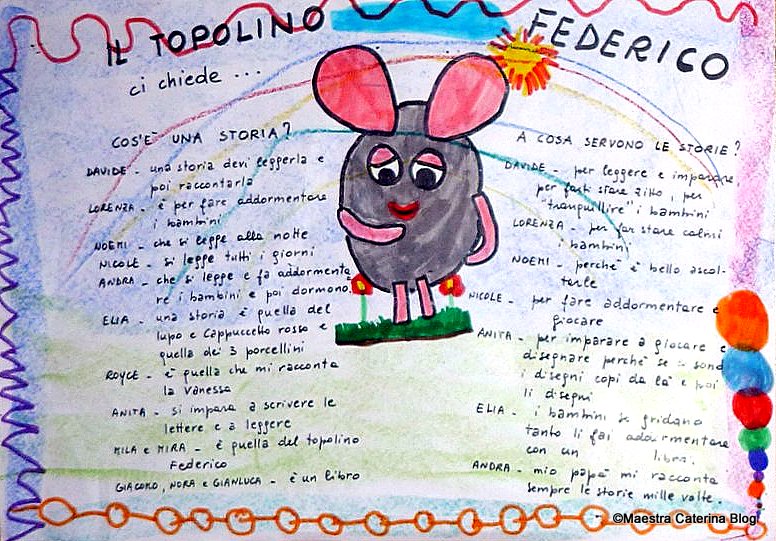 IL TOPOLINO FEDERICO
ci chiede ...
COS'È UNA STORIA?
DAVIDE - una storia devi leggerla e
poi raccontarla
LORENZA - è per fare addormentare
i bambini
NOEMI - che si legge alla notte
NICOLE - si legge tutti i giorni
ANDRA - che si legge e fa addormenta
re i bambini e poi dormono
ELIA - una storia è quella del
lupo e Cappuccetto rosso e
quella dei 3 porcellini
ROYCE - è quella che mi racconta
la Vanessa
ANITA - si impara a scrivere le
lettere e a leggere
MILA e MIRA - è quella del topolino
Federico
GIACOMO, NORA e GIANLUCA - è un libro
A COSA SERVONO LE STORIE?
DAVIDE - per leggere e imparare,
per farti stare zitto, per
"tranquillire" i bambini
LORENZA - per far stare calmi
i bambini
NOEMI - perché è bello ascol-
tarle
NICOLE - per fare addormentare e
giocare
ANITA - per imparare a giocare e
disegnare perché se ci sono
i disegni copi da là e poi
li disegni
ELIA - i bambini se gridano
tanto li fai addormentare
con un libro.
ANDRA - mio papà mi racconta
sempre le storie mille volte.
©Maestra Caterina Blog